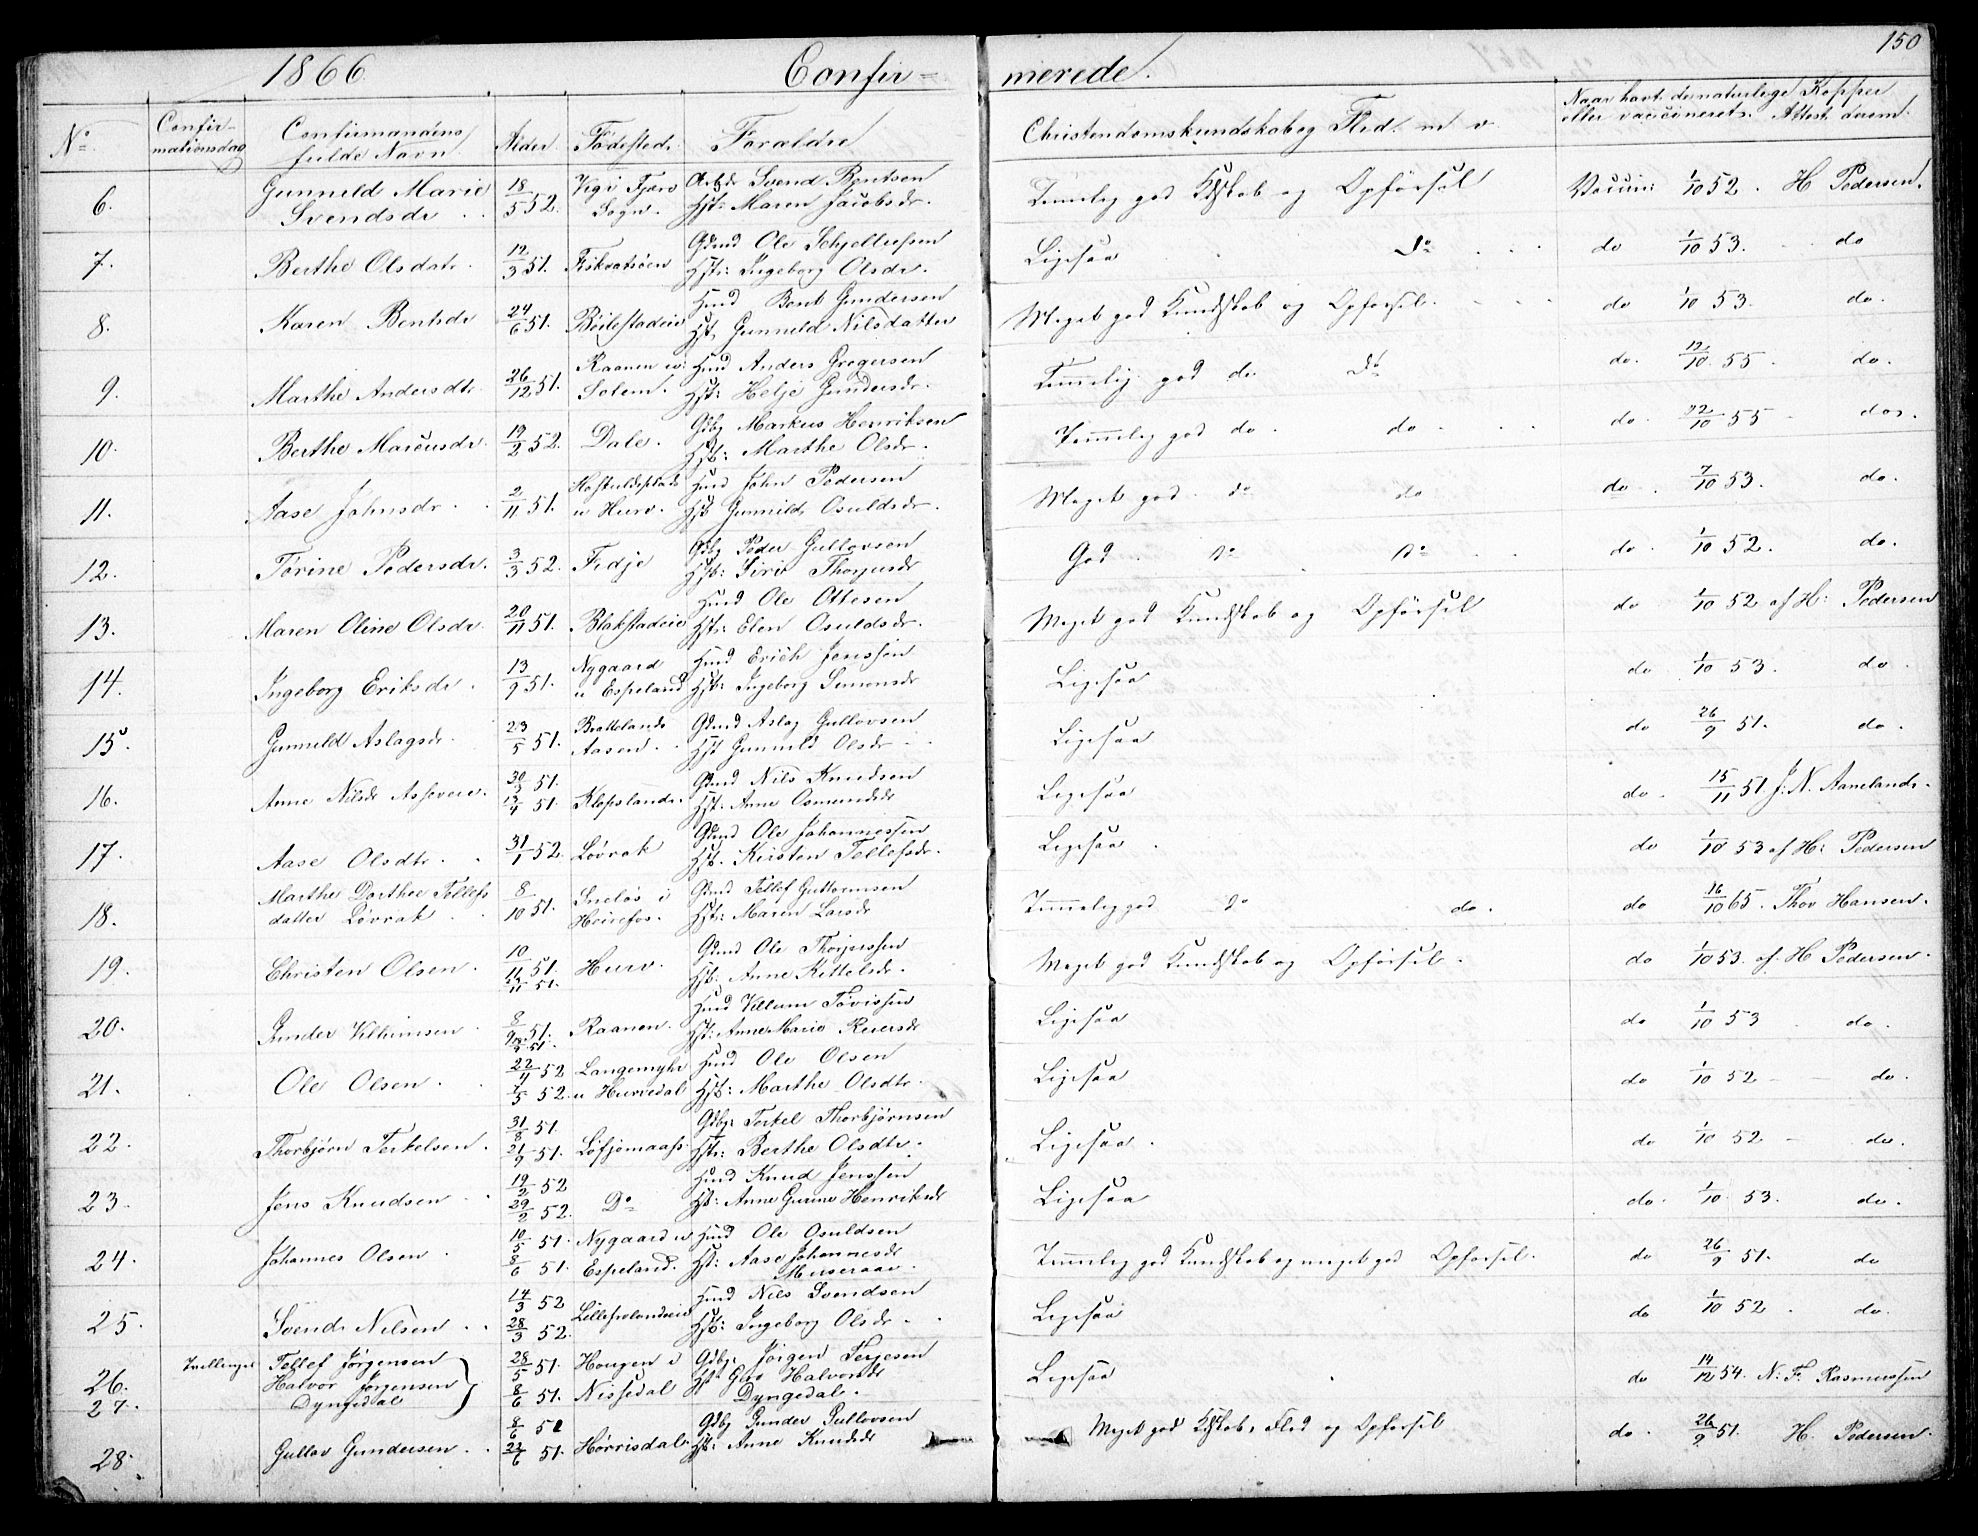 150
1866. Confir= merede.
No Confir- mationsdag Confirmandens fulde Navn Alder Fødested Forældre Christendomskundskab og Flid m v. Naar havt de naturlige Kopper eller vaccineret. Attest derom.
6. Gunnild Marie Svendsdr 18/5 52. Vig i Fjære Sogn. Arbdr Svend Bentsen Hst: Maren Jacobsdr. Temmelig god Kdskab og Opførsel Vaccin: 1/10 52. H Pedersen.
7. Berthe Olsdatr. 12/3 51. Gdmd Ole Schjelluhsen Hstr: Ingeborg Olsdr. Ligesaa Do do 1/10 53. do
8. Karen Bentsdr 24/6 51. Bøilestadeie Hmd Bent Gundersen Hst. Gunnild Nilsdatter Meget god Kundskab og Opførsel. do 1/10 53. do.
9. Marthe Andersdtr 26/12 51. Raanen u: Solem. Hmd Anders Gregersen Hst: Helje Gundersdr. Temmelig god do Do do. 12/10 55. do.
10. Berthe Marcusdr. 19/2 52. Dale. Gdbg Markus Henriksen Hst: Marthe Olsdr. Temmelig god do. do do. 12/10 55 do.
11. Aase Johnsdr. 2/11 51. u Hurv. Hmd John Pedersen Hst Gunnild Osuldsdr. Meget god do do do. 7/10 53. do.
12. Torine Pedersdr. 3/3 52. Fidje Gdbg Peder Gullovsen Hst: Siri Thorjusdr God Do Do do. 1/10 52. do.
13. Maren Oline Olsdr. 20/11 51. Blakstadeie Hmd Ole Ottesen Hstr: Elen Osuldsdr. Meget god Kundskab og Opførsel do 1/10 52 af H: Pedersen
14. Ingeborg Eriksdr. 13/9 51. Nygaard u Espeland Hmd Erich Jenssen Hst: Ingeborg Simonsdr Ligesaa do 1/10 53. do.
15. Gunnild Aslagsdr. 23/5 51. Brattelands Aasen. Gdmd Aslag Gullovsen Hst Gunnild Olsdr Ligesaa do 26/9 51. do.
16. Anne Nilsdr Assevere. 30/3 51. 13/4 51. Klopslande. Gdmd Nils Knudsen Hst: Anne Osmundsdr Ligesaa do. 15/11 51 J: N. Aanelands.
17. Aase Olsdtr. 31/1 52. Løvrak Gdmd Ole Johannessen Hst. Kirsten Tellefsdr. Ligesaa. do 1/10 53 af H: Pedersen
18. Marthe Dorthee Tellefs datter Løvrak 8/10 51. Sneløs i Heirefos. Gdmd Tellef Guttormsen Hst: Maren Larsdr Temmelig god Do do. do 16/10 65. Thov Hansen.
19. Christen Olsen. 10/11 51. 13/11 51. Hurv. Gdmd Ole Thorjussen Hst: Anne Kittelsdr. Meget god Kundskab og Opførsel. do 1/10 53. af H Pedersen.
20. Gunder Villumsen. 8/9 51. Raanen. Hmd Villum Tovissen Hst: Anne Marie Reiersdr Ligesaa do 1/10 53 do.
21. Ole Olsen. 22/4 52 7/5 52. Langemyhr u Hurvedal Hmd Ole Olsen Hst: Marthe Olsdtr. Ligesaa do 1/10 52 do.
22. Thorbjørn Terkelsen. 31/8 51. 21/9 51. Løfjomaass Gdbg: Terkel Thorbjørnsen Hstr: Berthe Olsdtr. Ligesaa. do 1/10 52 do.
23. Jens Knudsen 19/2 52 29/2 52. Do Hmd Knud Jenssen Hst: Anne Gurine Henriksdr Ligesaa do. 1/10 53. do.
24. Johannes Olsen 10/5 51. 8/6 51. Nygaard u Espeland. Hmd Ole Osuldsen Hst: Aase Johannesdr Museraae. Temmelig god Kundskab og meget god Opførsel. do 26/9 51. do
25. Svend Nilsen 14/3 52 28/3 52. Hmd Nils Svendsen Hst: Ingeborg Olsdr. Ligesaa do 1/10 52. do.
26. Tvillinger Tellef Jørgensen 28/5 51. Hougen i Gdbg: Jørgen Terjesen
27. Halvor Jørgensen Dyngedal 8/6 51. Nissedal Hst Guro Halvorsdr Dyngedal. Ligesaa do 14/12 54. N: F: Rasmussen
28. Gullov Gundersen. 8/6 51 22/6 51. Hørrisdal. Gdbg Gunder Gullovsen Hst: Anne Knudsdr Meget god Kdskab, Flid og Opførsel do. 26/9 51. H. Pedersen.